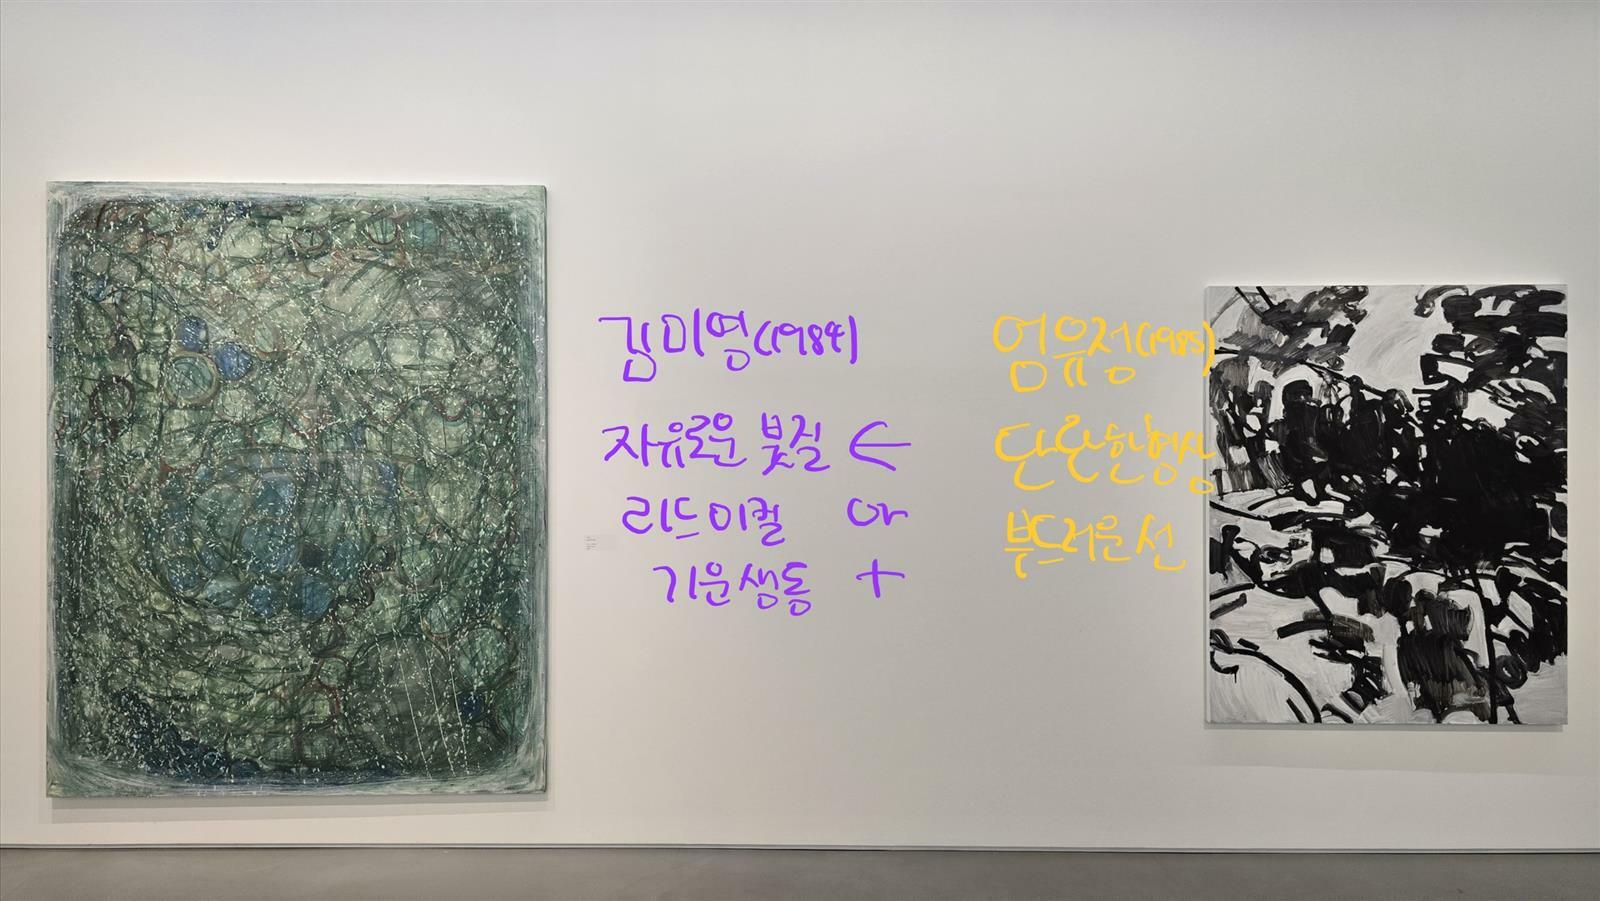 김미영(1984)
자유로운 붓질 ←
리드미컬 or
기운생동 +
엄유정(1985)
단단한 형상
부드러운 선